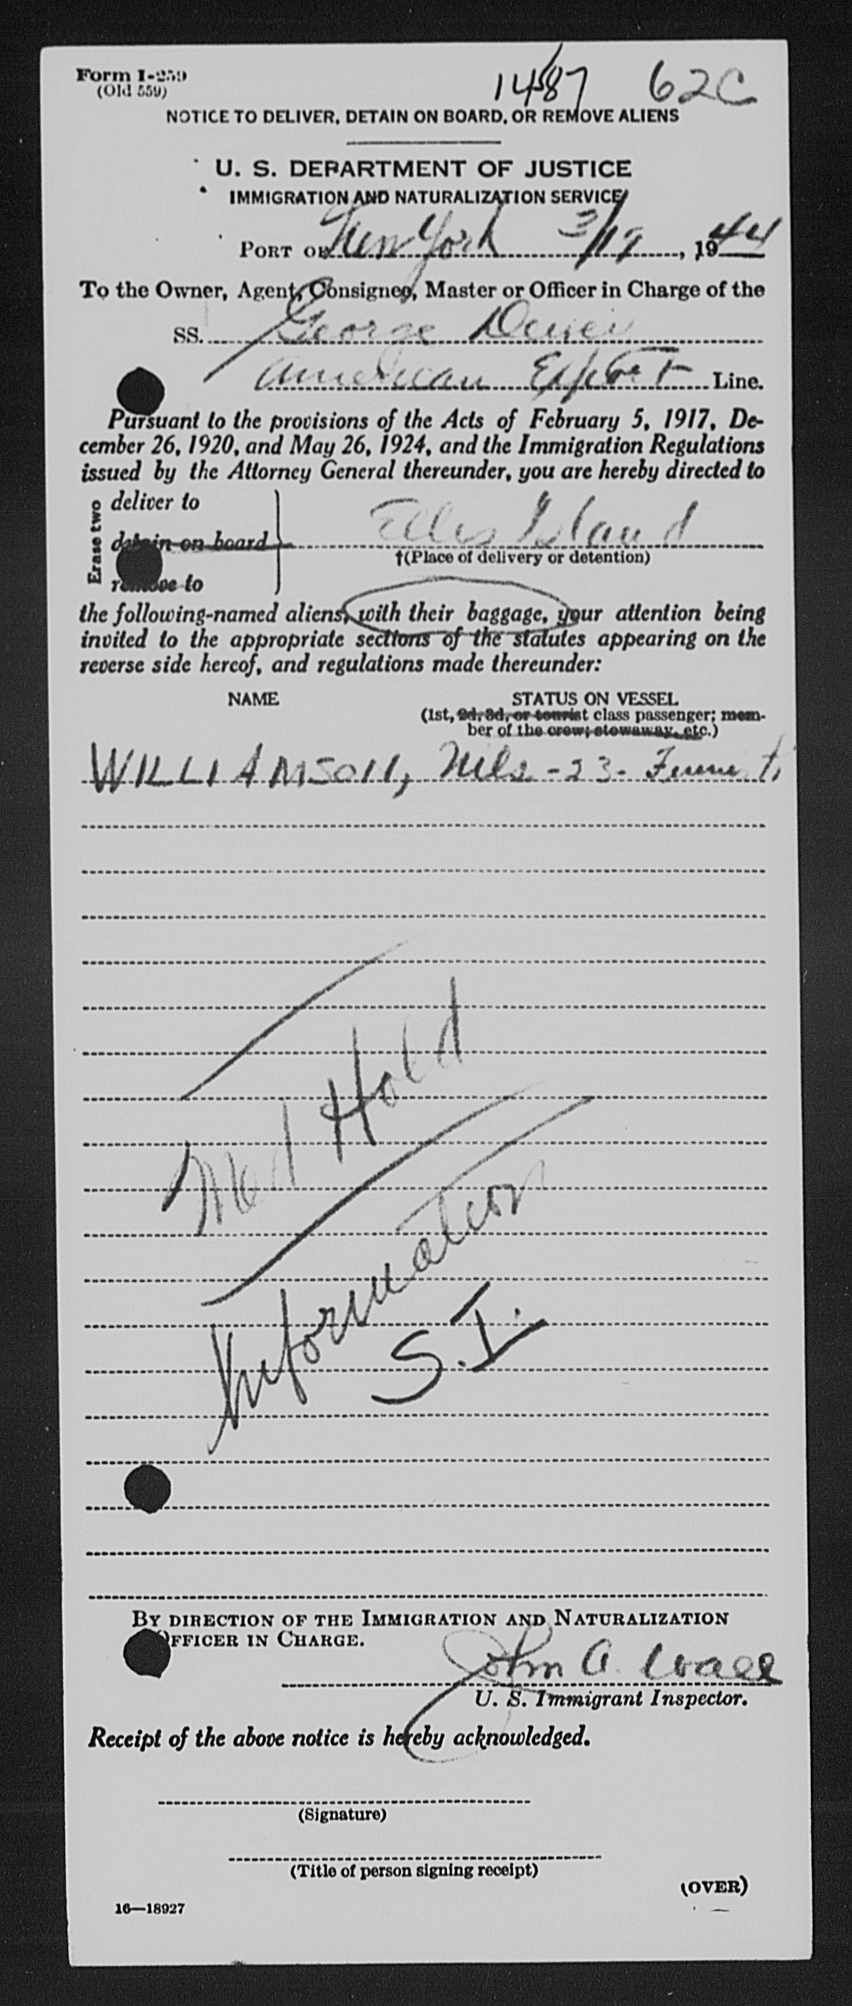 Form I-259
(Old 559)
1487 62C
NOTICE TO DELIVER, DETAIN ON BOARD, OR REMOVE ALIENS
U. S. DEPARTMENT OF JUSTICE
IMMIGRATION AND NATURALIZATION SERVICE
PORT OF New York 3/19, 1944
To the Owner, Agent, Consignee, Master or Officer in Charge of the
SS. George Dewey
American Export Line.
Pursuant to the provisions of the Acts of February 5, 1917, De-
cember 26, 1920, and May 26, 1924, and the Immigration Regulations
issued by the Attorney General thereunder, you are hereby directed to
Erase two
deliver to
detain on board
remove to
Ellis Island
†(Place of delivery or detention)
the following-named aliens, with their baggage, your attention being
invited to the appropriate sections of the statutes appearing on the
reverse side hereof, and regulations made thereunder:
NAME STATUS ON VESSEL
(1st, 2d, 3d, or tourist class passenger; mem-
ber of the crew; stowaway, etc.)
WILLIAMSON, Nils - 23 -
Med Hold
Information
S.I.
BY DIRECTION OF THE IMMIGRATION AND NATURALIZATION
OFFICER IN CHARGE.
John A. Wall
U. S. Immigrant Inspector.
Receipt of the above notice is hereby acknowledged.
(Signature)
(Title of person signing receipt)
(OVER)
16—18927